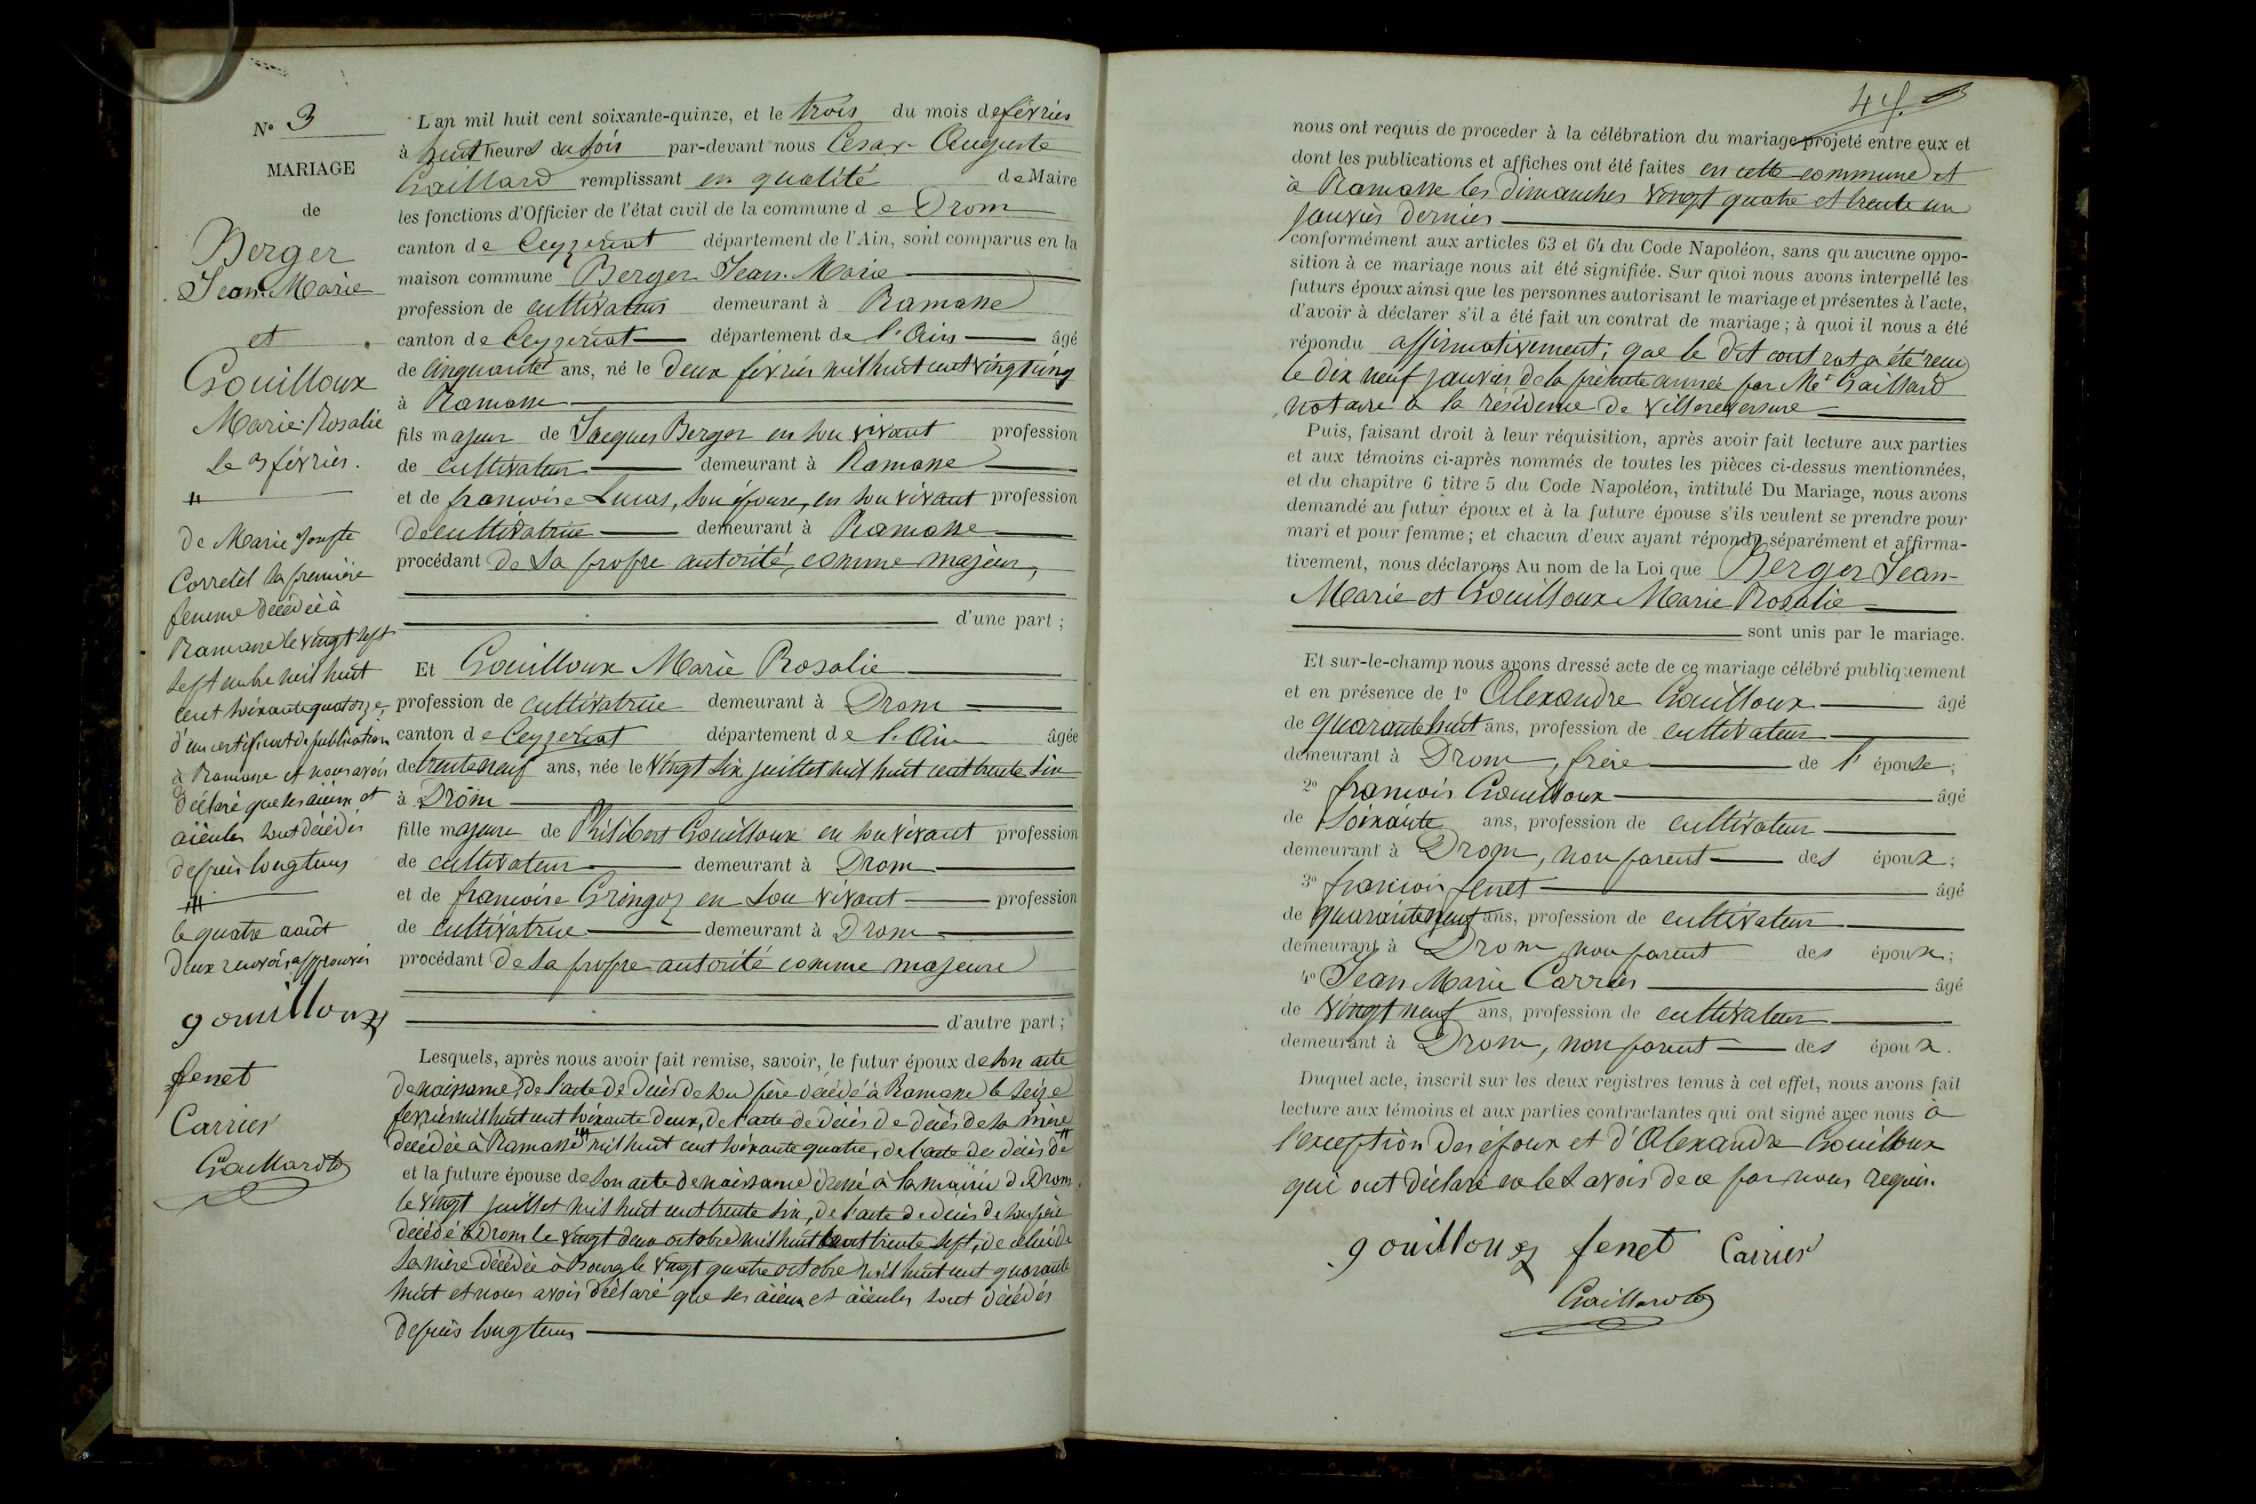 N° 3
MARIAGE
de
Berger
Jean-Marie
et
Gouilloux
Marie-Rosalie
le 3 février.
#
de Marie Josephte
Corretel sa première
femme décédée à
Ramasse le vingt sept
septembre mil huit
cent soixante quatorze,
d'un certificat de publication
à Ramasse et nous avoir
déclaré que ses aïeux et
aïeules sont décédés
depuis longtems
le quatre août
Deux renvois approuvés
gouilloux
fenet
Carrier
Gaillard
L'an mil huit cent soixante-quinze, et le trois du mois de février
à huit heures du soir par-devant nous César-Auguste
Gaillard remplissant en qualité de Maire
les fonctions d'Officier de l'état civil de la commune de Drom
canton de Ceyzériat département de l'Ain, sont comparus en la
maison commune Berger Jean-Marie
profession de cultivateur demeurant à Ramasse
canton de Ceyzériat département de l'Ain âgé
de cinquante ans, né le deux février mil huit cent vingt cinq
à Ramasse
fils majeur de Jacques Berger en son vivant profession
de cultivateur demeurant à Ramasse
et de francoise Lucas, son épouse, en son vivant profession
de cultivatrice demeurant à Ramasse
procédant de sa propre autorité, comme majeur,
d'une part ;
Et Gouilloux Marie Rosalie
profession de cultivatrice demeurant à Drom
canton de Ceyzériat département de l'Ain âgée
de trente neuf ans, née le vingt six juillet mil huit cent trente six
à Drom
fille majeure de Philibert Gouilloux en son vivant profession
de cultivateur demeurant à Drom
et de francoise Gringoz en son vivant profession
de cultivatrice demeurant à Drom
procédant de sa propre autorité comme majeure
d'autre part ;
Lesquels, après nous avoir fait remise, savoir, le futur époux de son acte
de naissance, de l'acte de décès de son père décédé à Ramasse le seize
fevrier mil huit cent soixante deux, de l'acte de décès de décès de sa mère
décédée à Ramasse mil huit cent soixante quatre, de l'acte des décès de #
et la future épouse de son acte de naissance dressé à la mairie de Drom
le vingt juillet mil huit cent trente six, de l'acte de décès de son père
décédé à Drom le vingt deux octobre mil huit cent trente sept, de celui de
sa mère décédée à Bourg le vingt quatre octobre mil huit cent quarante
huit et nous avoir déclaré que ses aïeux et aïeules sont décédés
depuis longtems
nous ont requis de proceder à la célébration du mariage projeté entre eux et
dont les publications et affiches ont été faites en cette commune et
à Ramasse les dimanches vingt quatre et trente un
janvier dernier
conformément aux articles 63 et 64 du Code Napoléon, sans qu'aucune oppo-
sition à ce mariage nous ait été signifiée. Sur quoi nous avons interpellé les
futurs époux ainsi que les personnes autorisant le mariage et présentes à l'acte,
d'avoir à déclarer s'il a été fait un contrat de mariage ; à quoi il nous a été
répondu affirmativement ; que le dit contrat a été reçu
le dix neuf janvier de la présente année par Me Gaillard
notaire à la résidence de villereversure
Puis, faisant droit à leur réquisition, après avoir fait lecture aux parties
et aux témoins ci-après nommés de toutes les pièces ci-dessus mentionnées,
et du chapitre 6 titre 5 du Code Napoléon, intitulé Du Mariage, nous avons
demandé au futur époux et à la future épouse s'ils veulent se prendre pour
mari et pour femme ; et chacun d'eux ayant répondu séparément et affirma-
tivement, nous déclarons Au nom de la Loi que Berger Jean-
Marie et Gouilloux Marie Rosalie
sont unis par le mariage.
Et sur-le-champ nous avons dressé acte de ce mariage célébré publiquement
et en présence de 1° Alexandre Gouilloux âgé
de quarante huit ans, profession de cultivateur
demeurant à Drom, frère de l'épouse ;
2° francois Gouilloux âgé
de soixante ans, profession de cultivateur
demeurant à Drom, non parent des époux ;
3° francois fenet âgé
de quarante neuf ans, profession de cultivateur
demeurant à Drom, non parent des époux ;
4° Jean Marie Carrier âgé
de vingt neuf ans, profession de cultivateur
demeurant à Drom, non parent des époux.
Duquel acte, inscrit sur les deux registres tenus à cet effet, nous avons fait
lecture aux témoins et aux parties contractantes qui ont signé avec nous à
l'exception des époux et d'Alexandre Gouilloux
qui ont déclaré ne le savoir de ce par nous requis.
gouilloux fenet Carrier
Gaillard